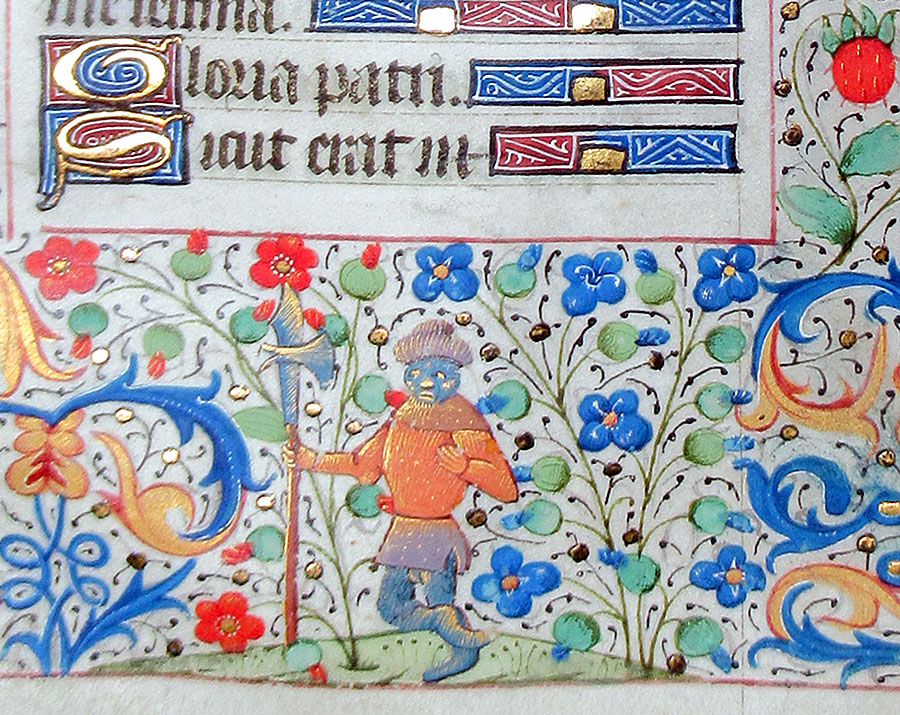 me festina.
Gloria patri.
Sicut erat in